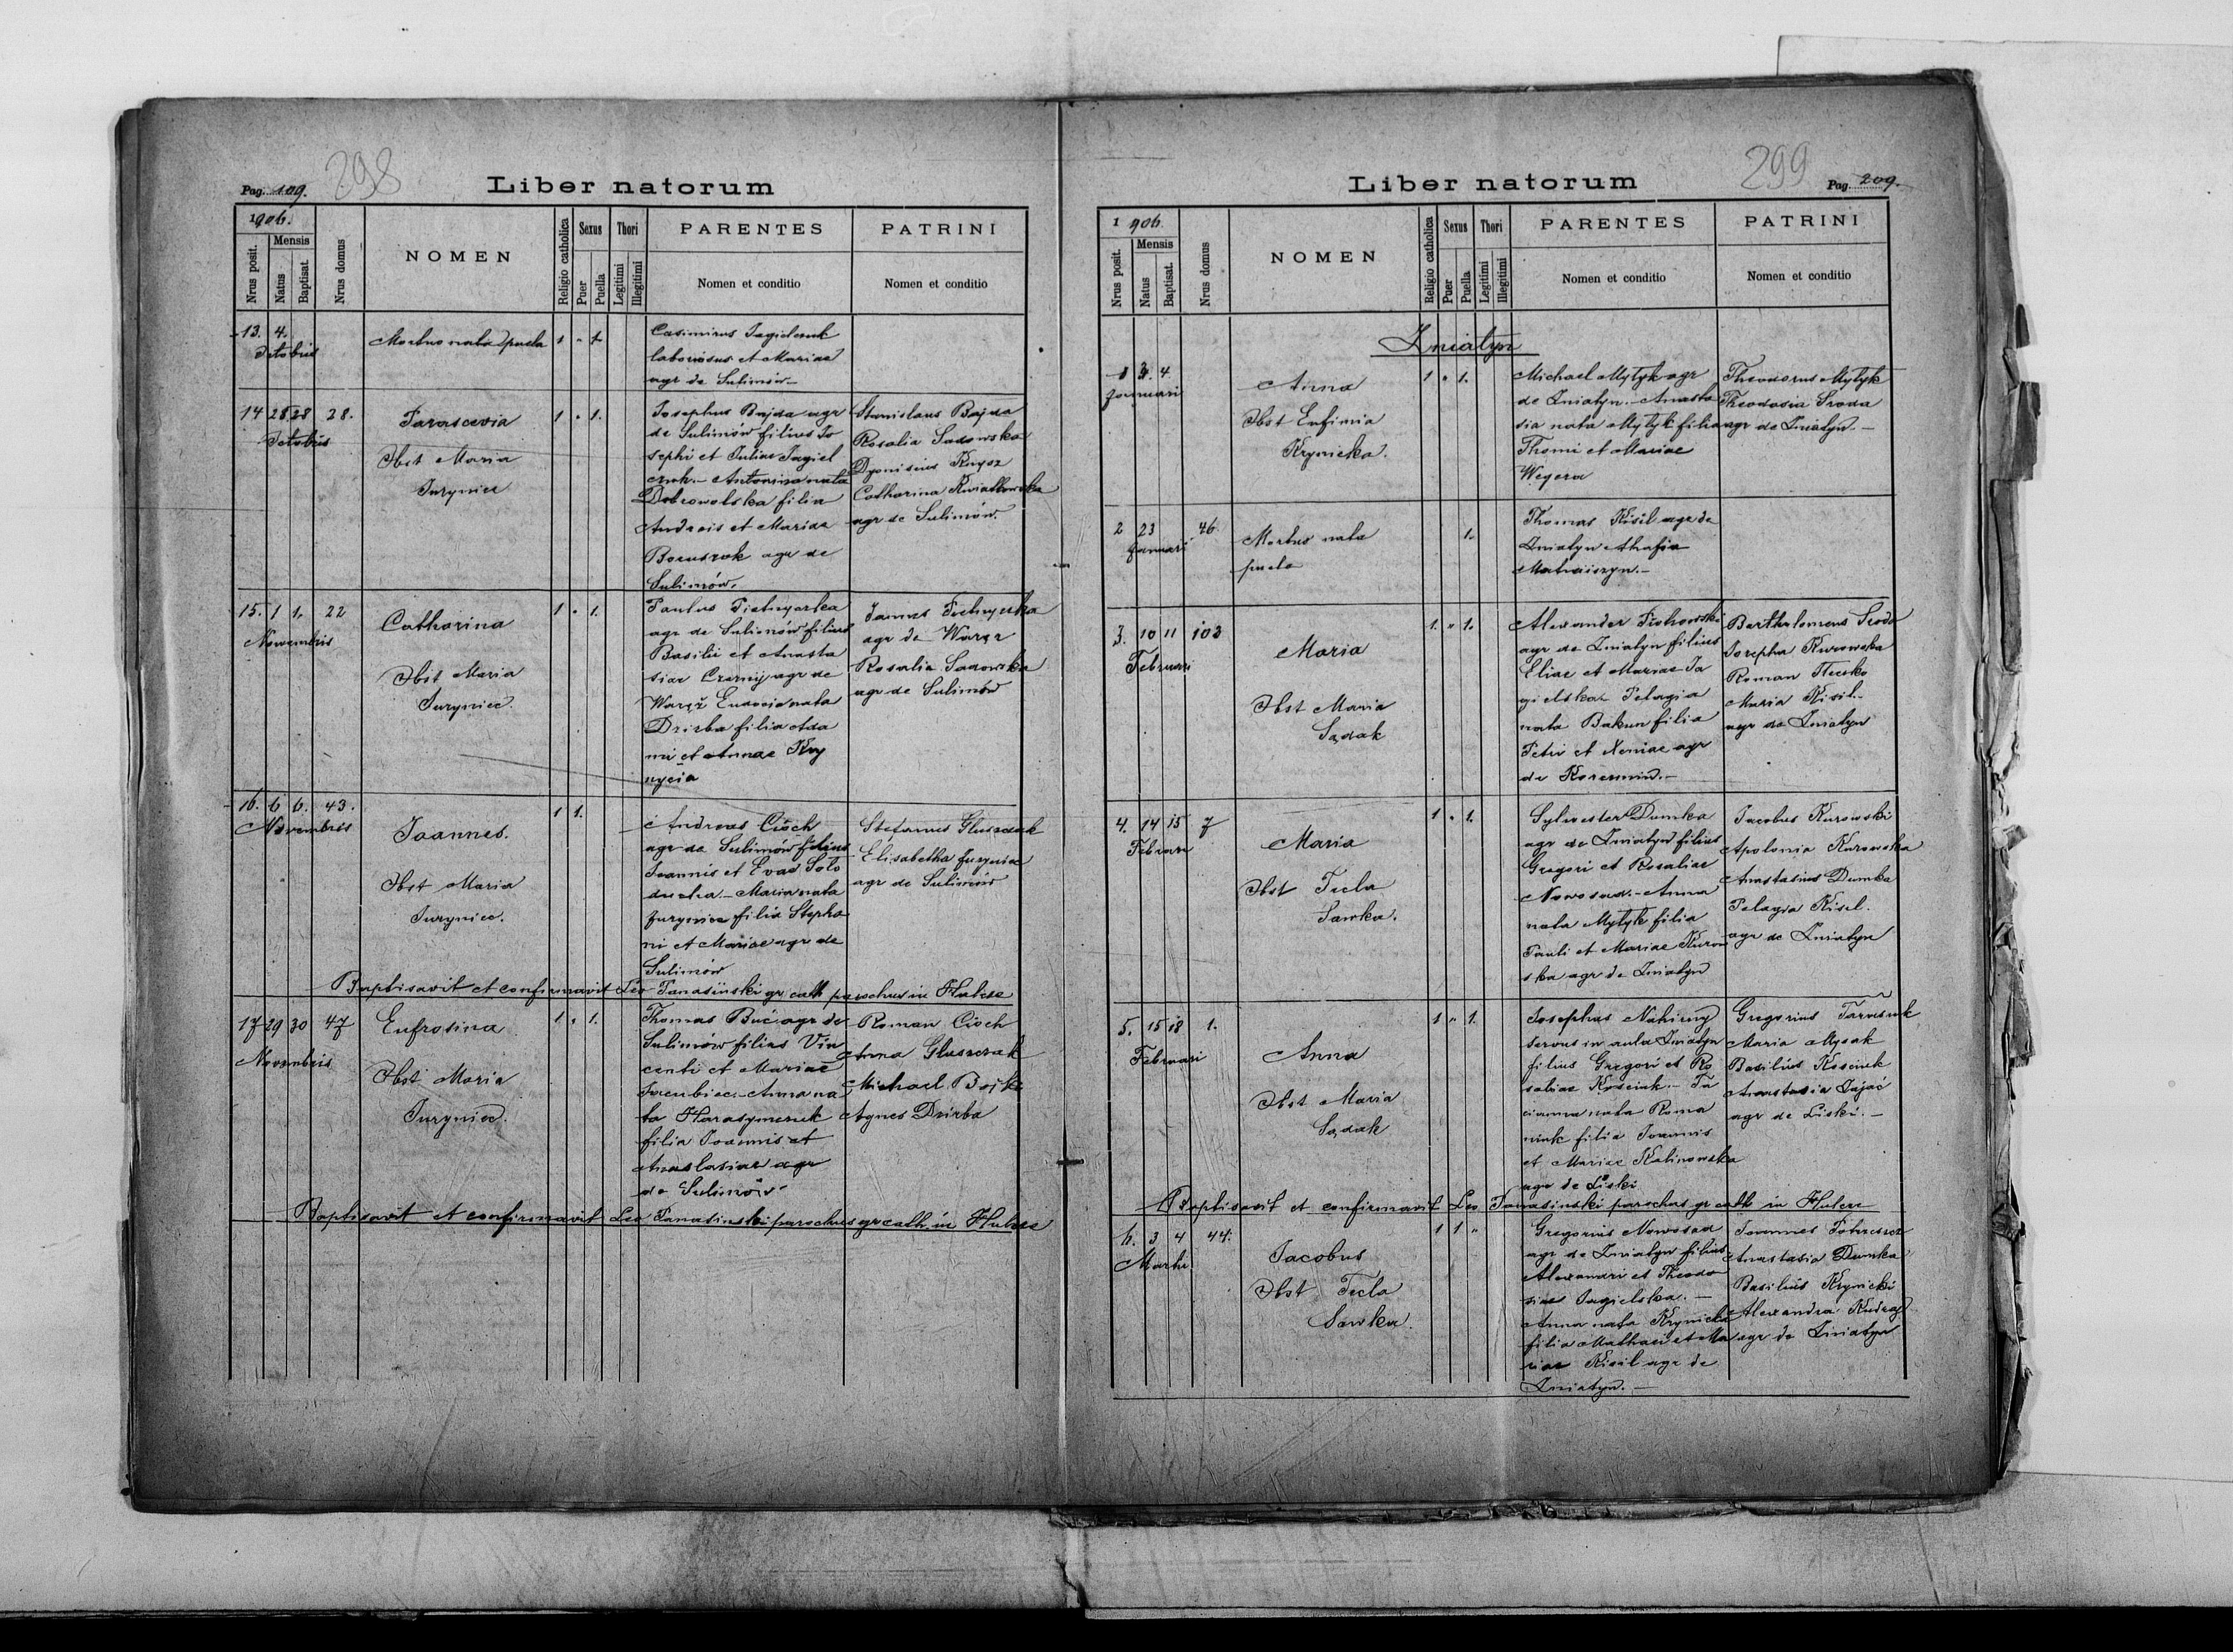 298
Pag. 109.
Liber natorum
1906.
Nrus posit.
Mensis
Natus
Baptisat.
Nrus domus
NOMEN
Religio catholica
Sexus
Puer
Puella
Thori
Legitimi
Illegitimi
PARENTES
Nomen et conditio
PATRINI
Nomen et conditio
13. 4.
Octobris
Mortuo nata puella 1 " 1.
Casimirus Jagielczuk
laboriosus et Mariae
agr de Sulimów
14 28 28 28.
Octobris
Parascevia
Obst Maria
Juryniec
1 " 1.
Josephus Bajda agr
de Sulimów filius Jo
sephi et Juliae Jagiel
czuk.- Antonina nata
Dobrowolska filia
Andreis et Mariae
agr de
Sulimów.
Stanislaus Bajda
Rosalia Sadowska
Dyonisius
Catharina Kwiatkowska
agr de Sulimów.
15. 1 1. 22
Novembris
Catharina
Obst Maria
Juryniec.
1 " 1.
Paulus Pietnyczka
agr de Sulimów filius
Basilii et Anasta
siae Czerny agr de
Waręż Eudocia nata
Dzizba filia Ada
mi et Annae Kry
nycia
agr de Waręż
Rosalia Sadowska
agr de Sulimów
16. 6 6. 43.
Novembris
Joannes.
Obst Maria
Juryniec.
1 1.
Andreas Cioch
agr de Sulimów filius
Joannis et Evae Solo
ducha.- Maria nata
Juryniec filia Stepha
ni et Mariae agr de
Sulimów
Stefanus Gluszczuk
Elisabetha Juryniec
agr de Sulimów
Baptisavit et confirmavit Leo Tanasinski gr cath parochus in Hulcze
17 29 30 47
Novembris
Eufrosina
Obst Maria
Juryniec.
1 " 1.
Thomas Buć agr de
Sulimów filius Vin
centi et Mariae
Anna na
ta Harasymczuk
filia Joannis et
Anastasiae agr
de Sulimów.
Roman Cioch
Anna Gluszczak
Michael Bojko
Agnes Dzizba
Baptisavit et confirmavit Leo Tanasinski parochus gr cath in Hulcze
299
Liber natorum
Pag. 209.
1906
Nrus posit.
Mensis
Natus
Baptisat.
Nrus domus
NOMEN
Religio catholica
Sexus
Puer
Puella
Thori
Legitimi
Illegitimi
PARENTES
Nomen et conditio
PATRINI
Nomen et conditio
Żniatyn
1 3. 4
Januari
Anna
Obst Eufimia
Krynicka.
1 " 1.
Michael Mytyk agr
de Żniatyn.- Anasta
sia nata Mytyk filia
Thomi et Mariae
Wegera
Theodorus Mytyk
Theodosia Sroda
agr de Żniatyn.-
2 23 46
Januari
Mortuo nata
puela
1.
Thomas Kisil agr de
Żniatyn
3. 10 11 103
Februari
Maria
Obst Maria
Sądak
1. " 1.
Alexander
agr de Żniatyn filius
Eliae et Mariae Ja
gielska Pelagia
nata Bakun filia
Petri et Xeniae agr
de
Bartholomeus Sroda
Josepha Kurowska
Roman
Maria Kisil.-
agr de Żniatyn
4. 14 15 7
Februari
Maria
Obst Tecla
Sawka.
1 " 1.
Sylvester Dumka
agr de Żniatyn filius
Gregori et Rosaliae
Nowosad.- Anna
nata Mytyk filia
Pauli et Mariae Kurow
ska agr de Żniatyn
Jacobus Kurowski
Apolonia Kurowska
Anastasius Dumka
Pelagia Kisil.
agr de Żniatyn
5. 15 18 1.
Februari
Anna
Obst Maria
Sądak
1 " 1.
Josephus Nahirny
servus in aula Żniatyn
filius Gregori et Ro
saliae Kosciuk.- Ta
cianna nata Roma
niuk filia Joannis
et Mariae Kalinowska
agr de Liski
Gregorius Tarasiuk
Maria Mysak
Basilius Kosciuk
Anastasia Zając
agr de Liski.-
Baptisavit et confirmavit Leo Tanasinski parochus gr cath in Hulcze
6. 3 4 44.
Martii
Jacobus
Obst Tecla
Sawka.
1 1 "
Gregorius Nowosad
agr de Żniatyn filius
Alexandri et Theodo
siae Jagielska.-
Anna nata Krynicka
filia Mathaei et Ma
riae Kisil agr de
Żniatyn.-
Joannes
Anastasia Dumka
Basilius Krynicki
Alexandra
agr de Żniatyn